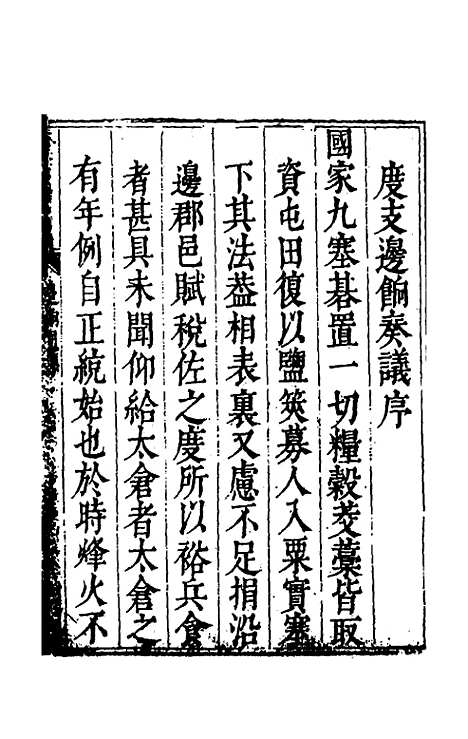 度支邊餉奏議序
國家九塞碁置一切糧穀芻藁皆取
資屯田復以鹽筴募人入粟實塞
下其法葢相表裏又慮不足捐沿
邊郡邑賦稅佐之度所以裕兵食
者甚具未聞仰給太倉者太倉之
有年例自正統始也於時烽火不